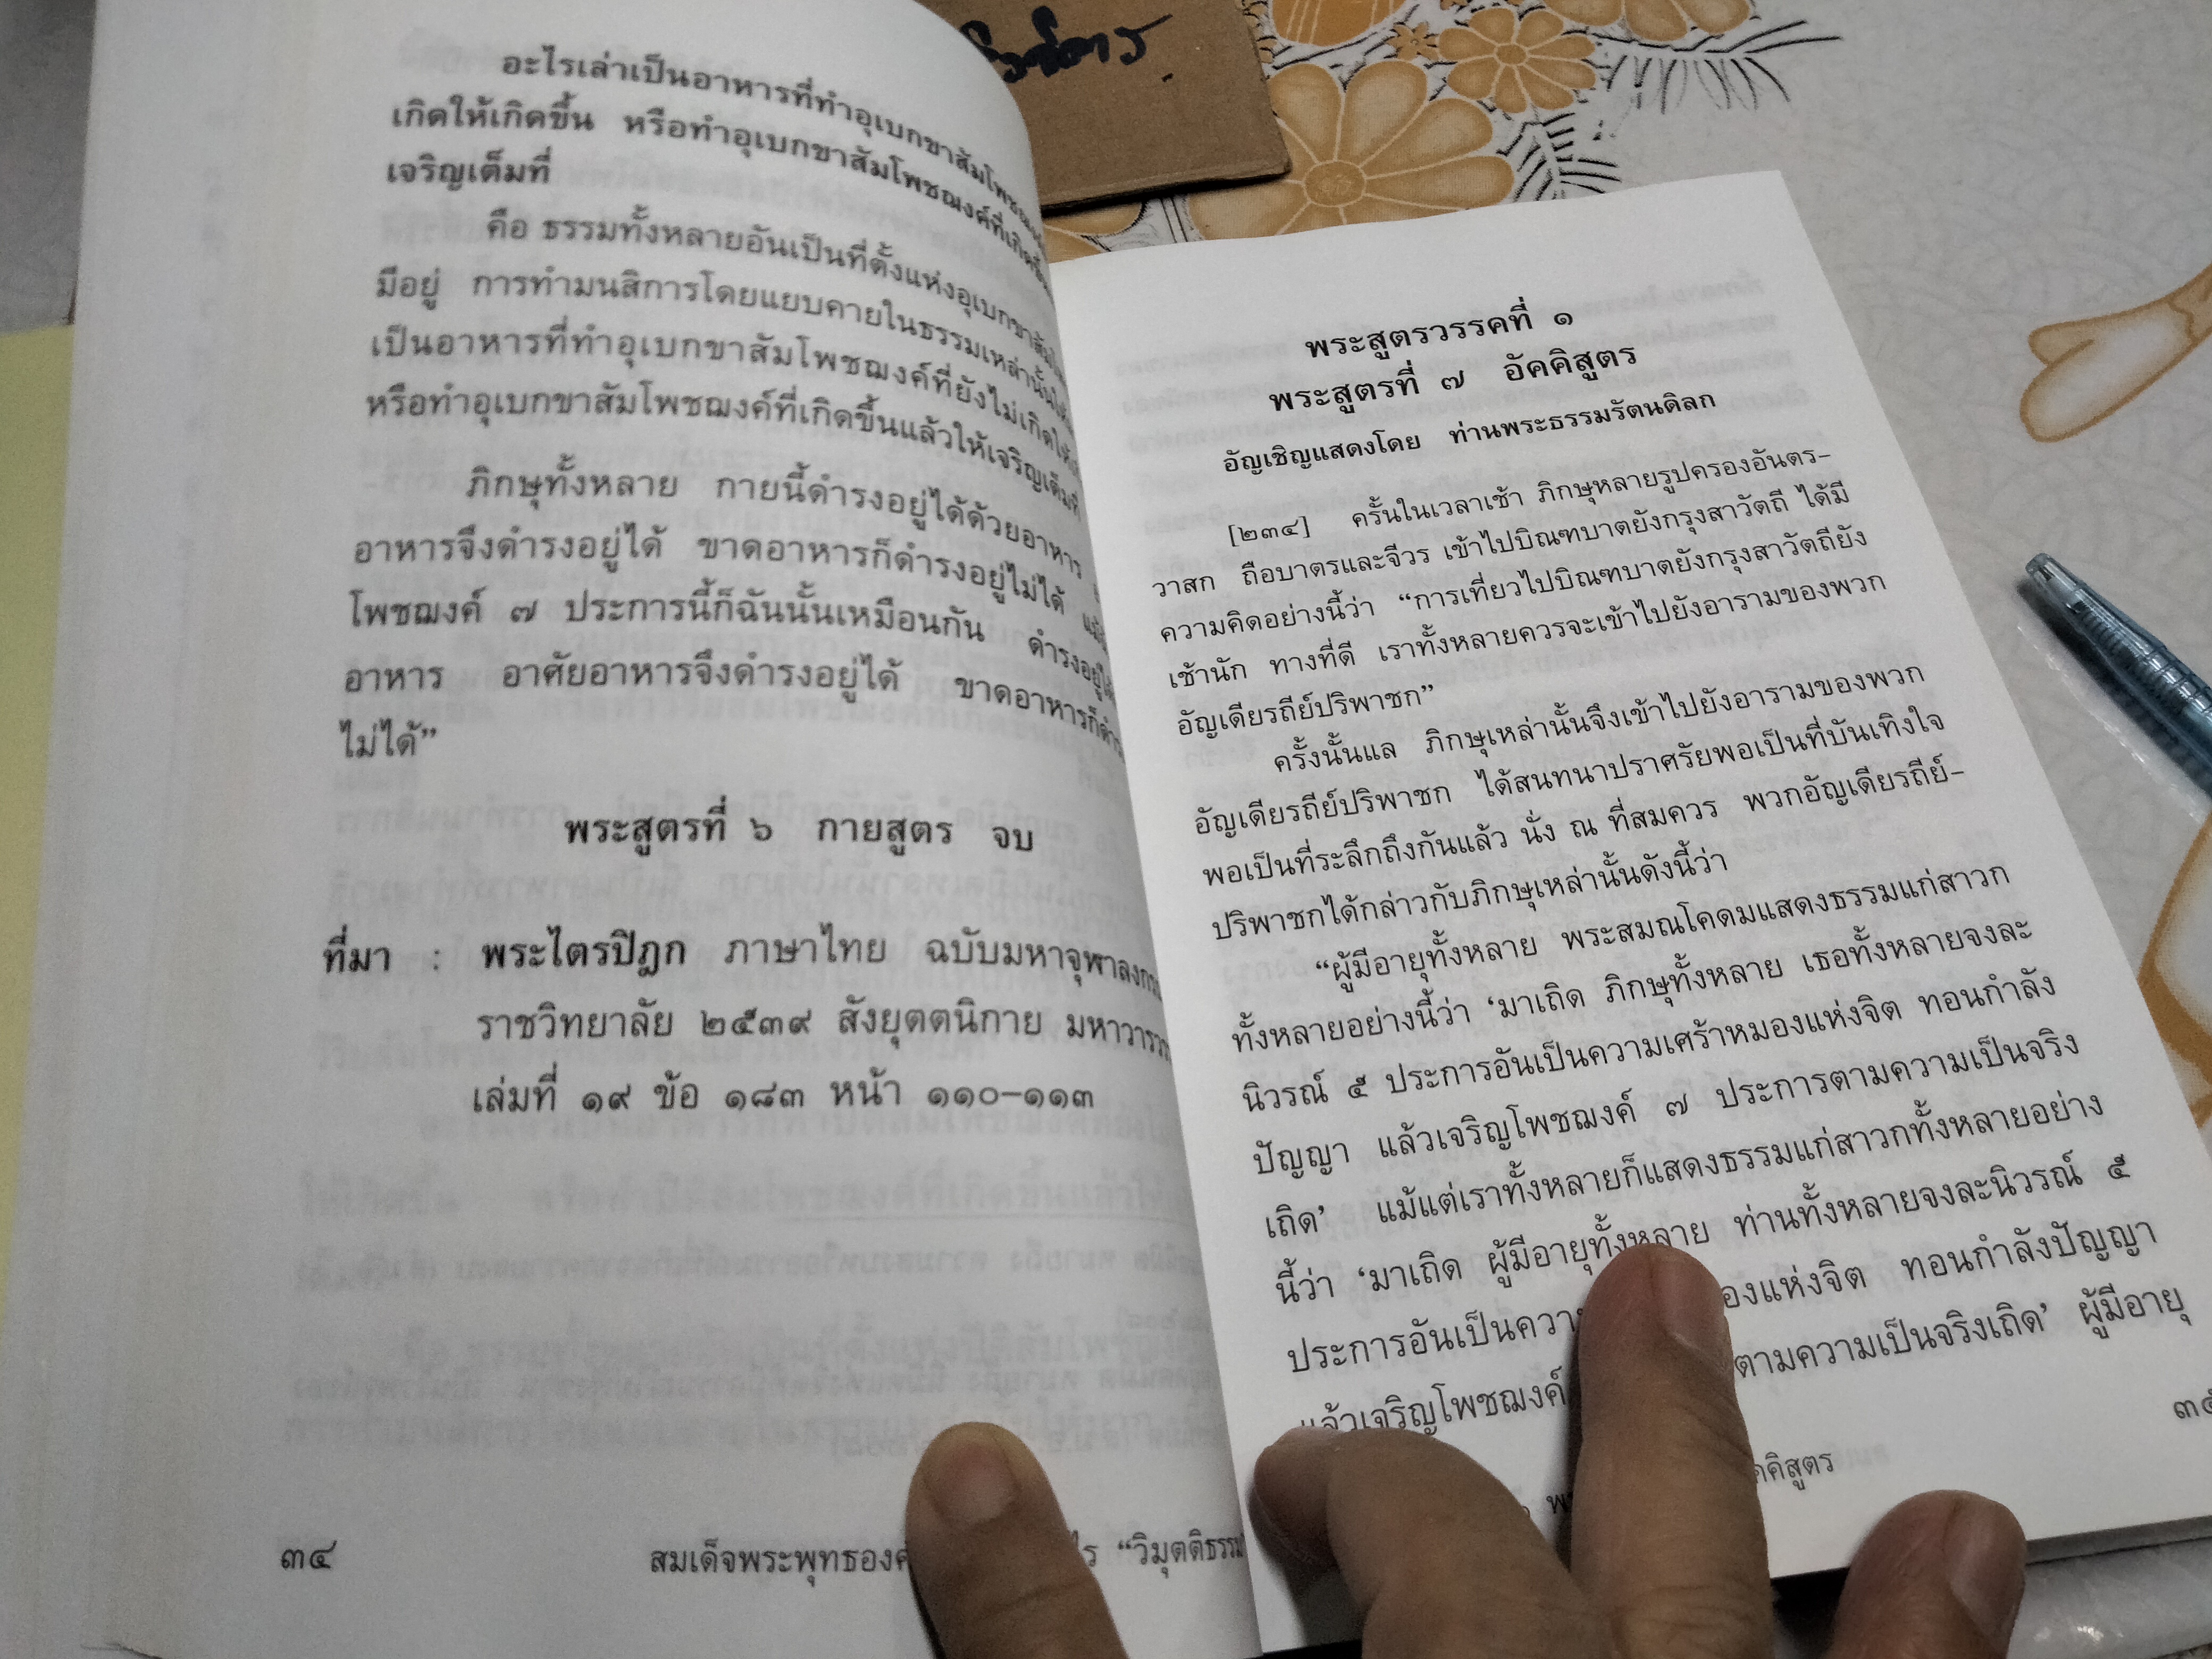 อะไรเล่าเป็นอาหารที่ทำอุเบกขาสัมโพชฌงค์
เกิดให้เกิดขึ้น หรือทำอุเบกขาสัมโพชฌงค์ที่เกิดขึ้น
เจริญเต็มที่
คือ ธรรมทั้งหลายอันเป็นที่ตั้งแห่งอุเบกขา
มีอยู่ การทำมนสิการโดยแยบคายในธรรมเหล่านั้น
เป็นอาหารที่ทำอุเบกขาสัมโพชฌงค์ที่ยังไม่เกิดให้
หรือทำอุเบกขาสัมโพชฌงค์ที่เกิดขึ้นแล้วให้เจริญเต็มที่
ภิกษุทั้งหลาย กายนี้ดำรงอยู่ได้ด้วยอาหาร
อาหารจึงดำรงอยู่ได้ ขาดอาหารก็ดำรงอยู่ไม่ได้
โพชฌงค์ ๗ ประการนี้ก็ฉันนั้นเหมือนกัน ดำรงอยู่ได้
อาหาร อาศัยอาหารจึงดำรงอยู่ได้ ขาดอาหารก็ดำรง
ไม่ได้”
พระสูตรที่ ๖ กายสูตร จบ
ที่มา : พระไตรปิฎก ภาษาไทย ฉบับมหาจุฬาลงกรณ
ราชวิทยาลัย ๒๕๓๙ สังยุตตนิกาย มหาวารวรร
เล่มที่ ๑๙ ข้อ ๑๘๓ หน้า ๑๑๐–๑๑๓
๓๔ สมเด็จพระพุทธองค ไร “วิมุตติธรรม
พระสูตรวรรคที่ ๑
พระสูตรที่ ๗ อัคคิสูตร
อัญเชิญแสดงโดย ท่านพระธรรมรัตนดิลก
[๒๓๔] ครั้นในเวลาเช้า ภิกษุหลายรูปครองอันตร-
วาสก ถือบาตรและจีวร เข้าไปบิณฑบาตยังกรุงสาวัตถี ได้มี
ความคิดอย่างนี้ว่า “การเที่ยวไปบิณฑบาตยังกรุงสาวัตถียัง
เช้านัก ทางที่ดี เราทั้งหลายควรจะเข้าไปยังอารามของพวก
อัญเดียรถีย์ปริพาชก”
ครั้งนั้นแล ภิกษุเหล่านั้นจึงเข้าไปยังอารามของพวก
อัญเดียรถีย์ปริพาชก ได้สนทนาปราศรัยพอเป็นที่บันเทิงใจ
พอเป็นที่ระลึกถึงกันแล้ว นั่ง ณ ที่สมควร พวกอัญเดียรถีย์-
ปริพาชกได้กล่าวกับภิกษุเหล่านั้นดังนี้ว่า
“ผู้มีอายุทั้งหลาย พระสมณโคดมแสดงธรรมแก่สาวก
ทั้งหลายอย่างนี้ว่า ‘มาเถิด ภิกษุทั้งหลาย เธอทั้งหลายจงละ
นิวรณ์ ๕ ประการอันเป็นความเศร้าหมองแห่งจิต ทอนกำลัง
ปัญญา แล้วเจริญโพชฌงค์ ๗ ประการตามความเป็นจริง
เถิด’ แม้แต่เราทั้งหลายก็แสดงธรรมแก่สาวกทั้งหลายอย่าง
นี้ว่า ‘มาเถิด ผู้มีอายุทั้งหลาย ท่านทั้งหลายจงละนิวรณ์ ๕
ประการอันเป็นควา องแห่งจิต ทอนกำลังปัญญา
แล้วเจริญโพชฌงค์ ตามความเป็นจริงเถิด’ ผู้มีอายุ
๓๕
คคิสูตร